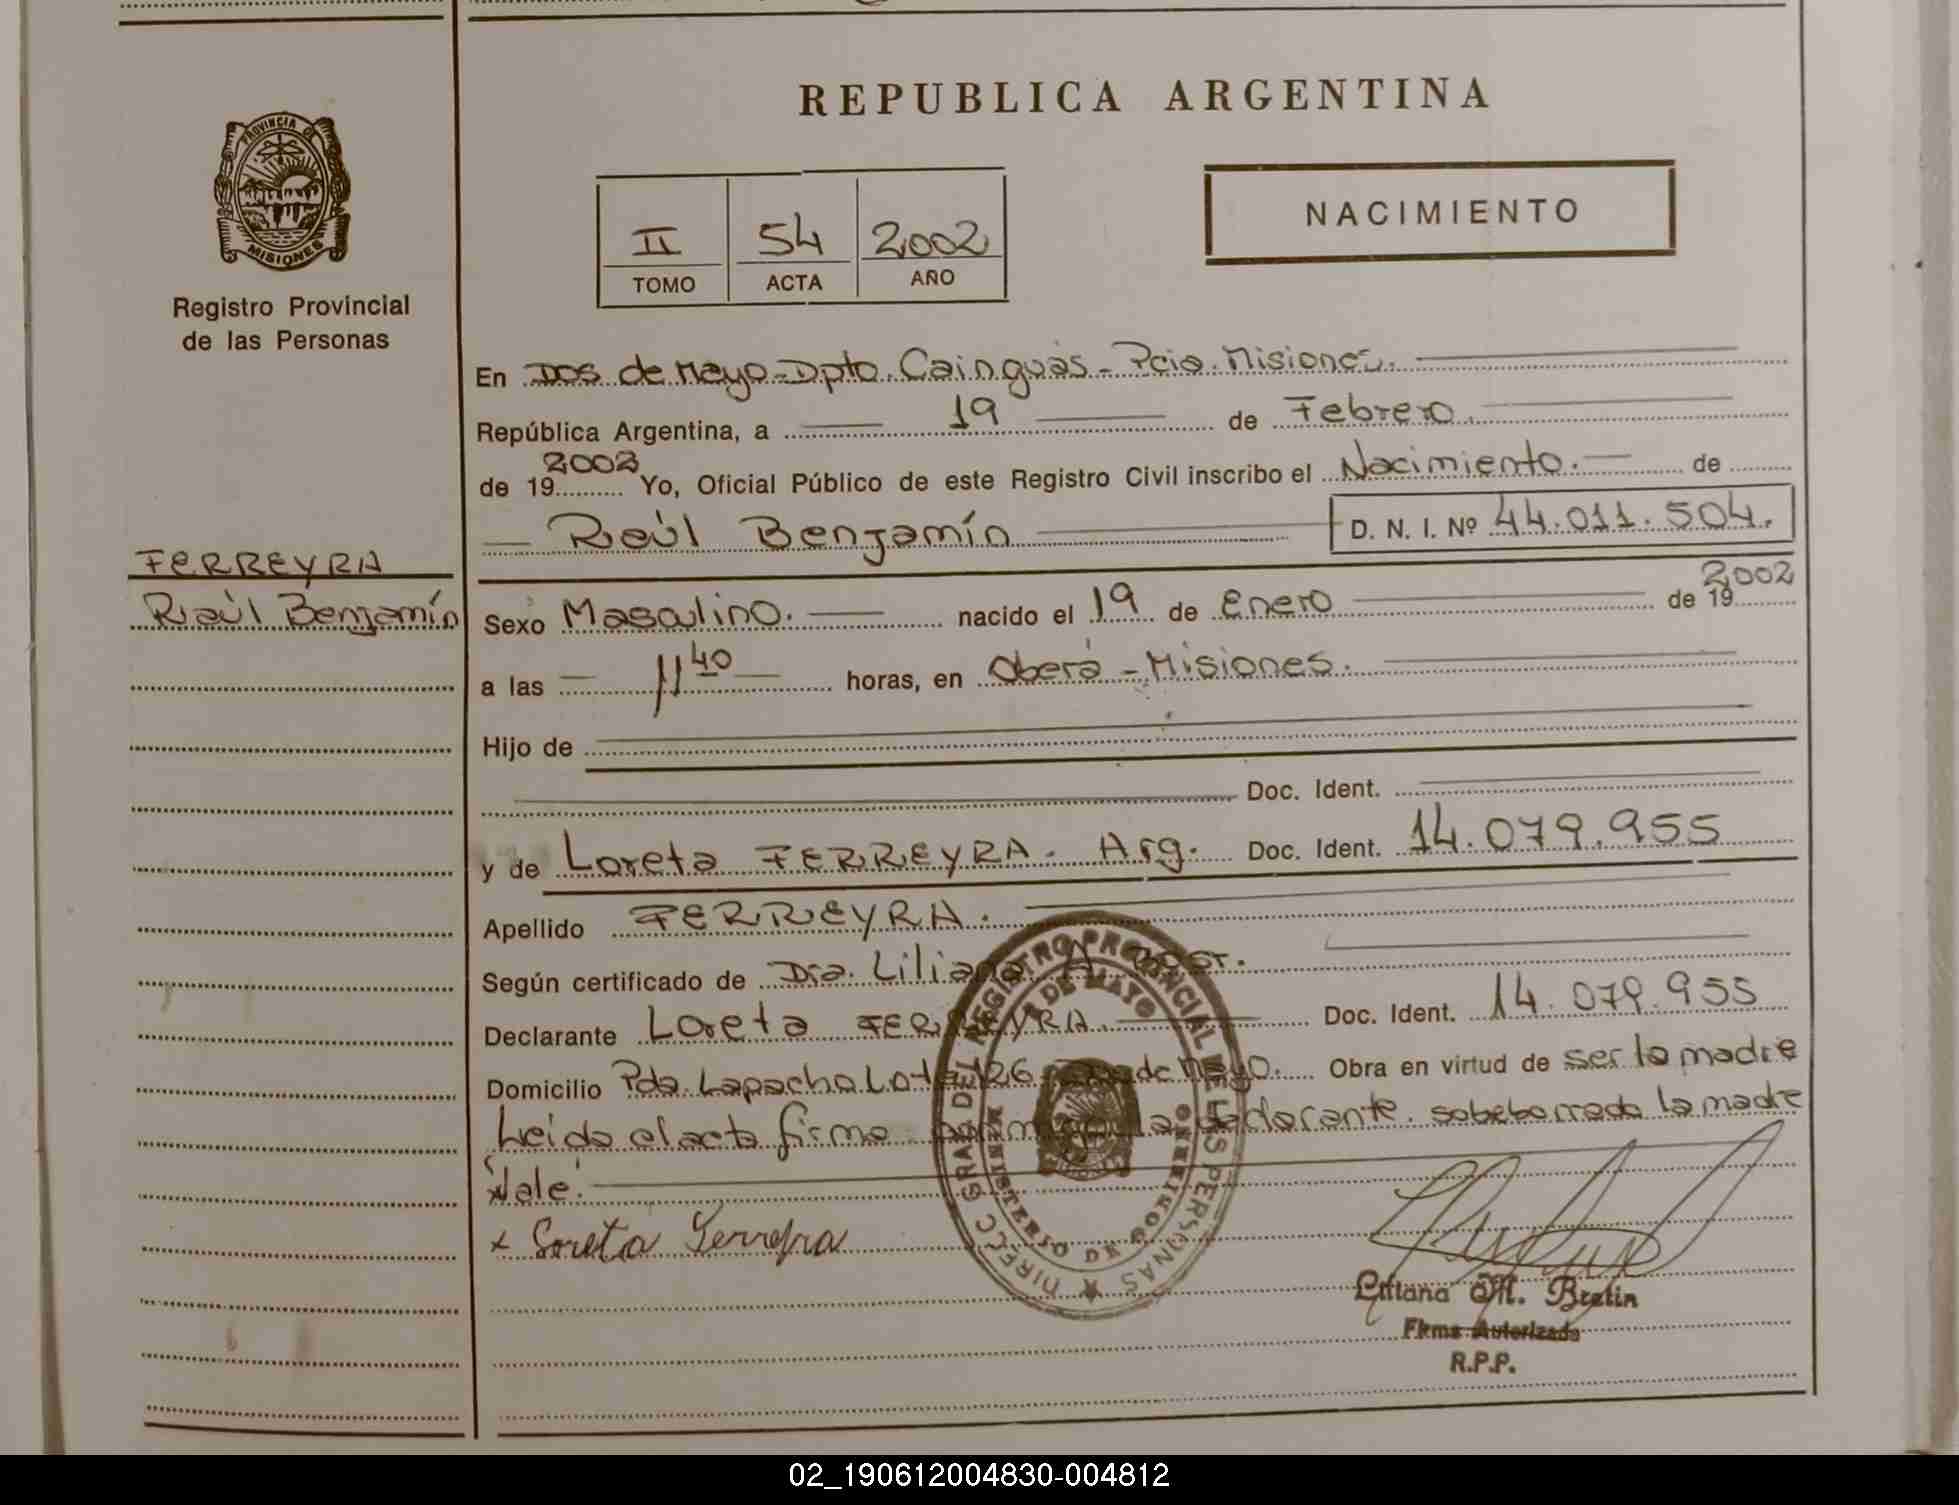 REPUBLICA ARGENTINA
PROVINCIA DE
MISIONES
Registro Provincial
de las Personas
II 54 2002
TOMO ACTA AÑO
NACIMIENTO
En Dos de Mayo-Dpto. Cainguás-Pcia. Misiones.
República Argentina, a 19 de Febrero.
de 19 2002 Yo, Oficial Público de este Registro Civil inscribo el Nacimiento. de
Raúl Benjamín D. N. I. Nº 44.011.504.
FERREYRA
Raúl Benjamín
Sexo Masculino. nacido el 19 de Enero de 19 2002
a las 11 40 horas, en Oberá-Misiones.
Hijo de
Doc. Ident.
y de Loreta FERREYRA. Arg. Doc. Ident. 14.079.955
Apellido FERREYRA.
Según certificado de Dra. Liliana A
Declarante Loreta FERREYRA. Doc. Ident. 14.079.955
Domicilio Pda. Lapacho Lote 126 Dos de Mayo. Obra en virtud de ser la madre
Leida el acta firma la declarante. sobeborrado la madre
Vale.
x Loreta Ferreyra
DIREC GRAL DEL REGISTRO PROVINCIAL DE LAS PERSONAS
2 DE MAYO
MINISTERIO DE GOBIERNO
Liliana M. Brelin
Firma Autorizada
R.P.P.
02_190612004830-004812